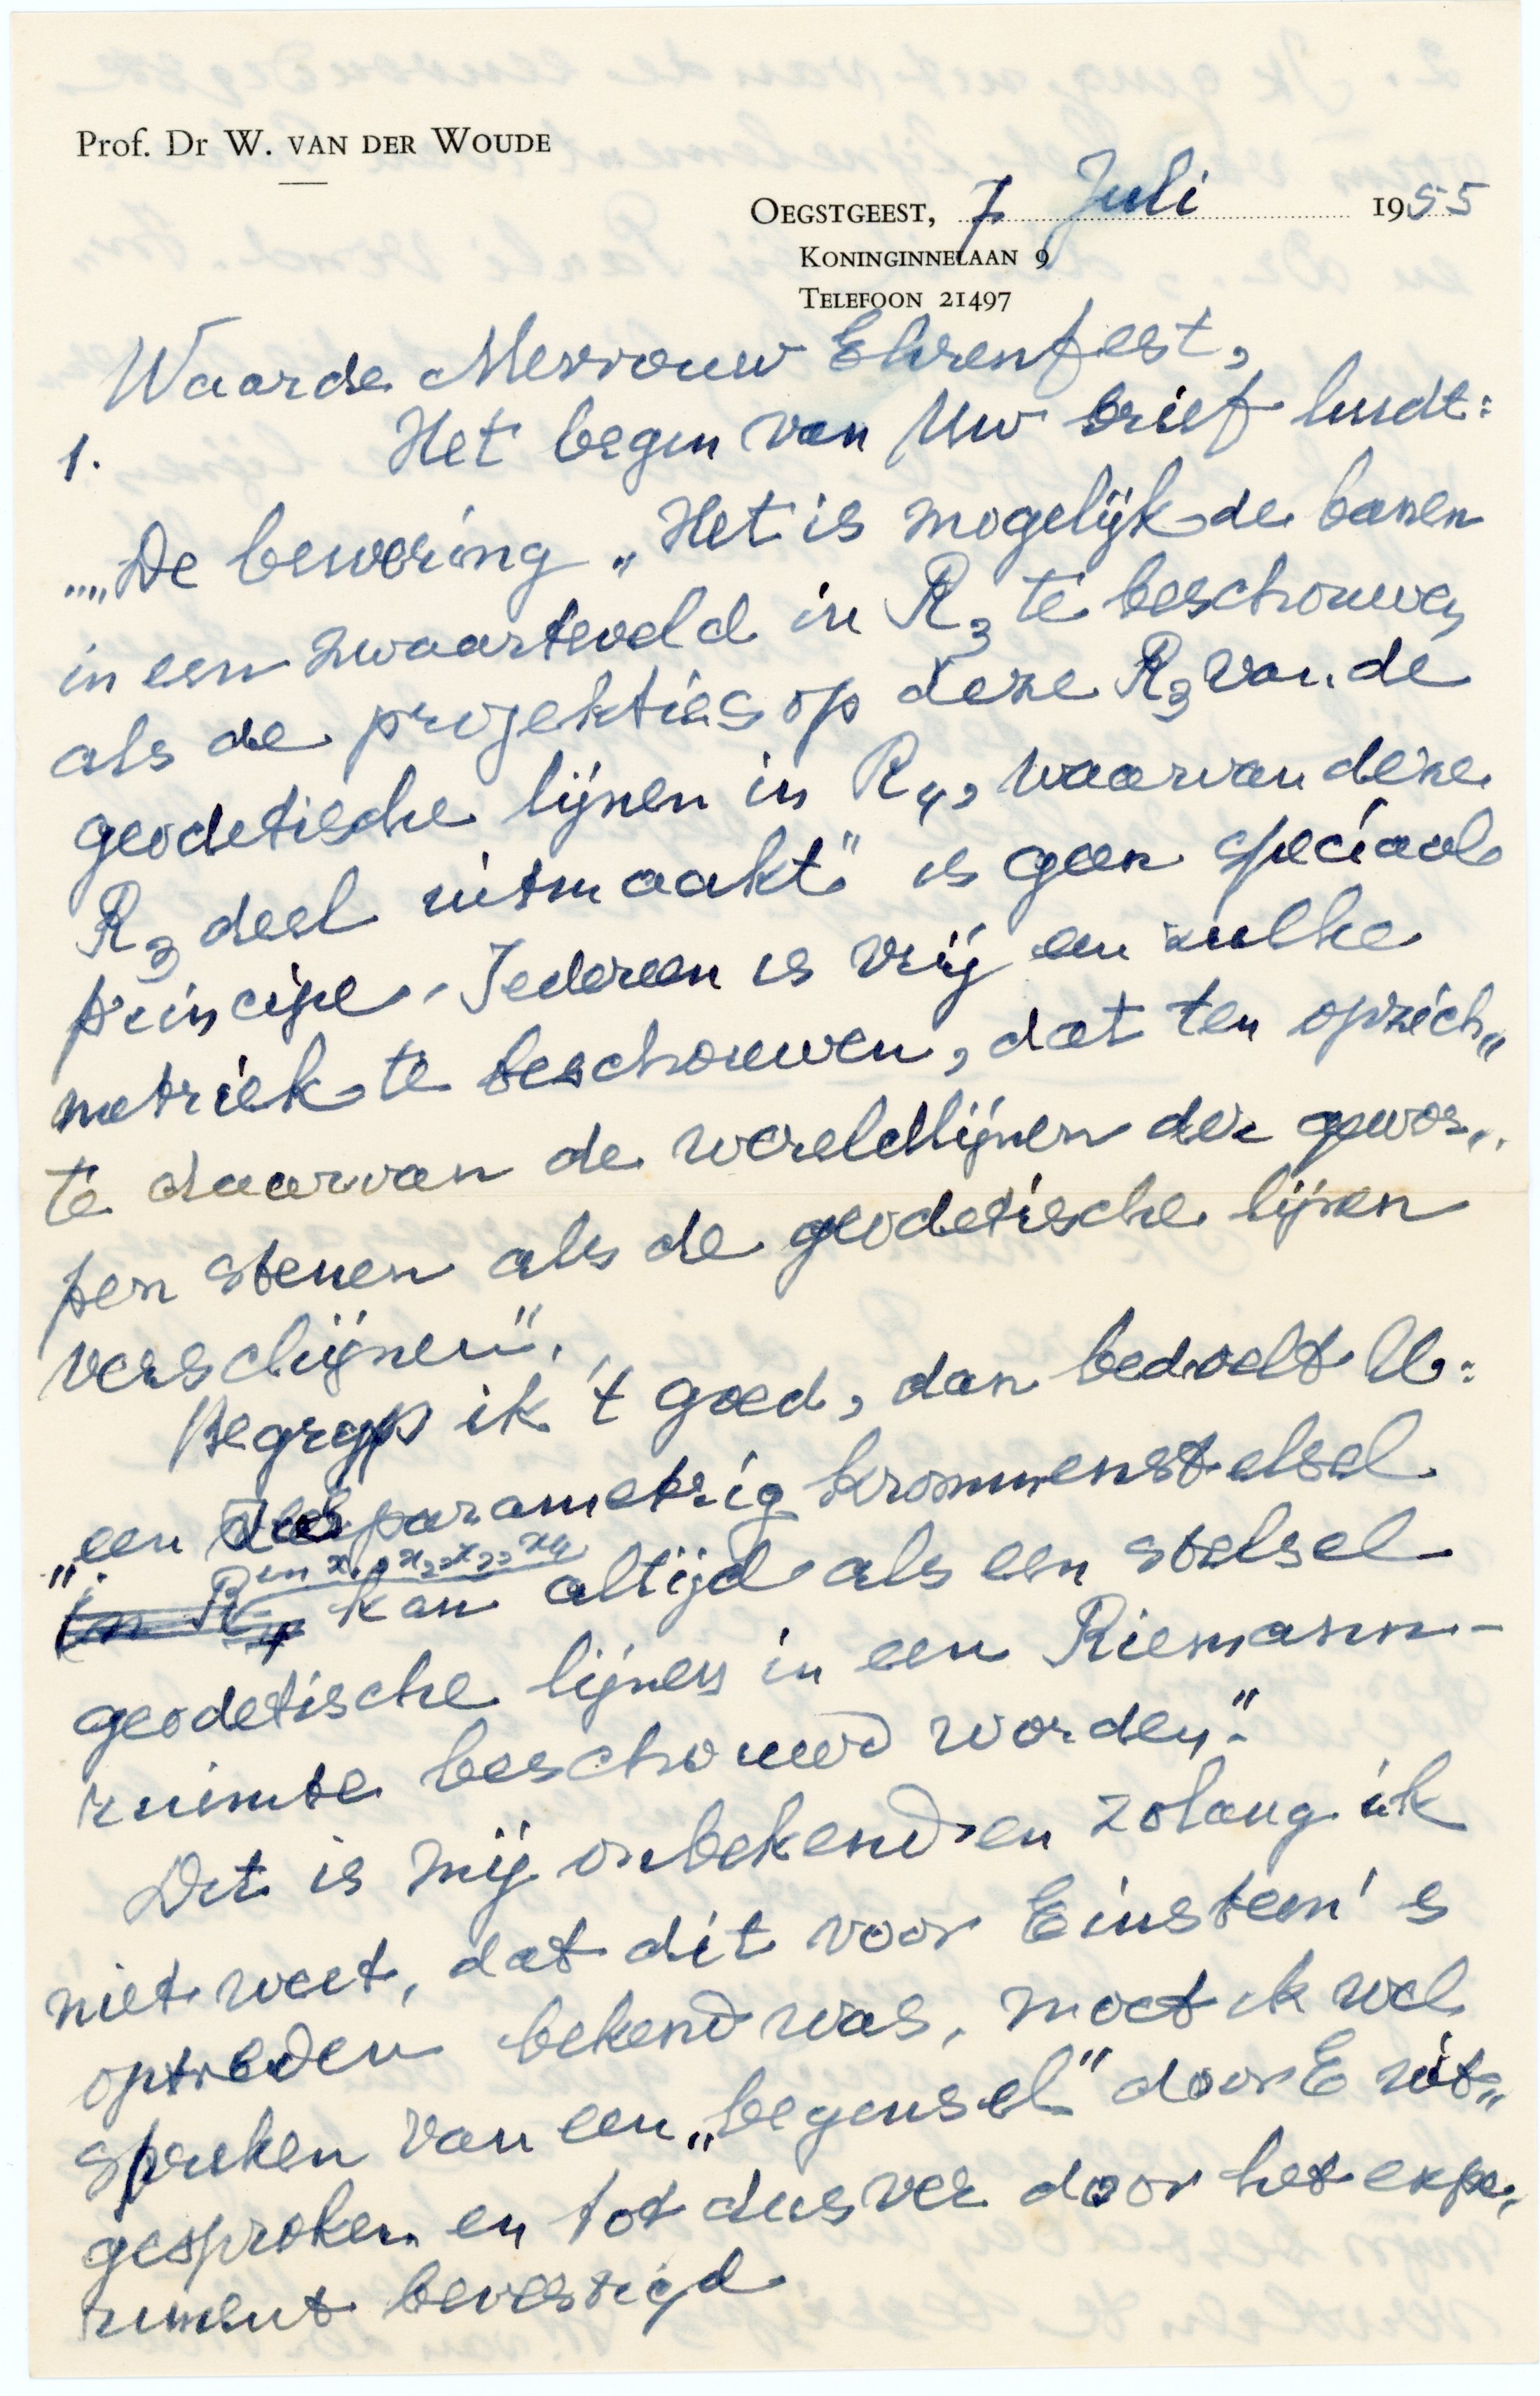 Prof. Dr W. VAN DER WOUDE
OEGSTGEEST, 7 Juli 1955
KONINGINNELAAN 9
TELEFOON 21497
Waarde Mevrouw Ehrenfest,
1. Het begin van Uw brief luidt:
„„De bewering „Het is mogelijk de banen
in een zwaarteveld in R3 te beschouwen
als de projekties op deze R3 van de
geodetische lijnen in R4, waarvan deze
R3 deel uitmaakt" is geen speciaal
principe. Iedereen is vrij een zulke
metriek te beschouwen, dat ten opzich„
te daarvan de wereldlijnen der gewor„
pen stenen als de geodetische lijnen
verschijnen".
Begryp ik 't goed, dan bedoelt U:
„een parametrig krommenstelsel
in x1, x2, x3, x4
in R4 kan altijd als een stelsel
geodetische lijnen in een Riemann-
ruimte beschouwd worden".
Dit is mij onbekend en zolang ik
niet weet, dat dit voor Einstein's
optreden bekend was, moet ik wel
spreken van een „beginsel" door E uit„
gesproken en tot dusver door het expe„
riment bevestigd